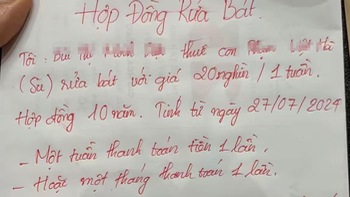 Hợp Đồng Rửa Bát.
Tôi: Bùi thuê con Hà
(Su) rửa bát với giá 20 nghìn / 1 tuần.
Hợp đồng 10 năm. Tính từ ngày 27/07/2024
- Một tuần thanh toán tiền 1 lần.
- Hoặc một tháng thanh toán 1 lần.